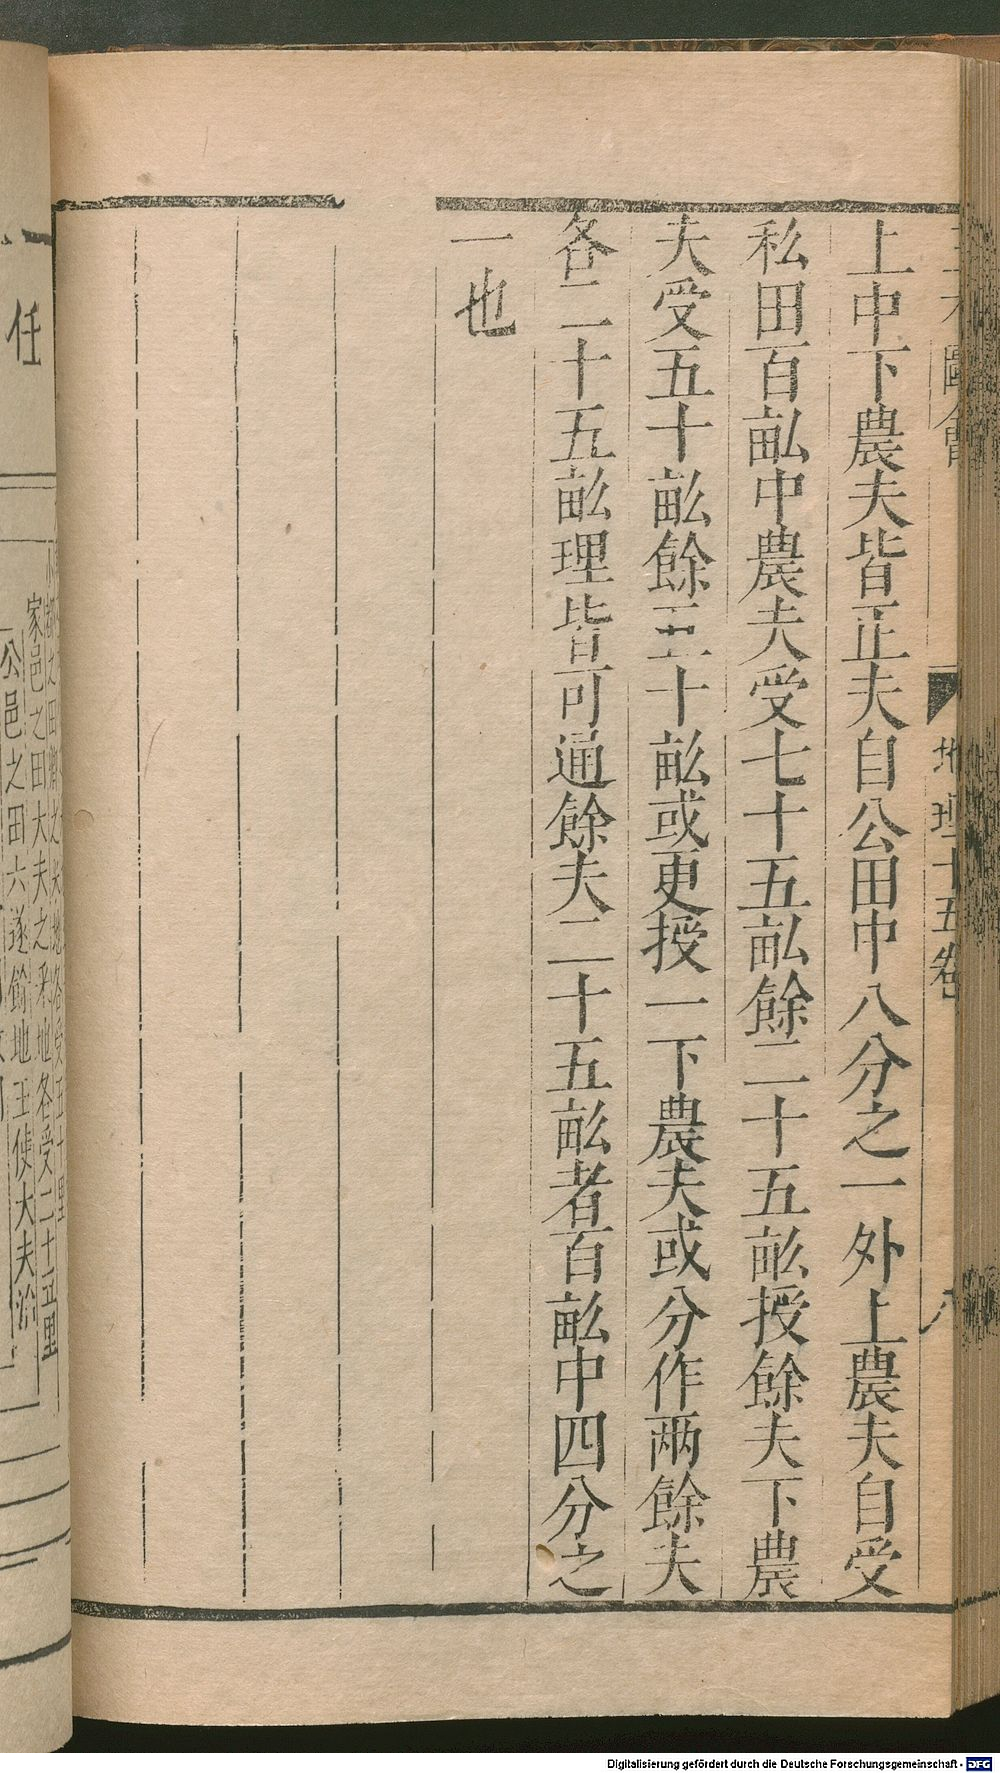 上中下農夫皆正夫自公田中八分之一外上農夫自受
私田百畝中農夫受七十五畝餘二十五畝授餘夫下農
夫受五十畝餘五十畝或更授一下農夫或分作兩餘夫
各二十五畝理皆可通餘夫二十五畝者百畝中四分之
一也
地理十五卷
八
任
家邑之田大夫之采地各受二十五里
公邑之田六遂餘地王使大夫治
Digitalisierung gefördert durch die Deutsche Forschungsgemeinschaft - DFG